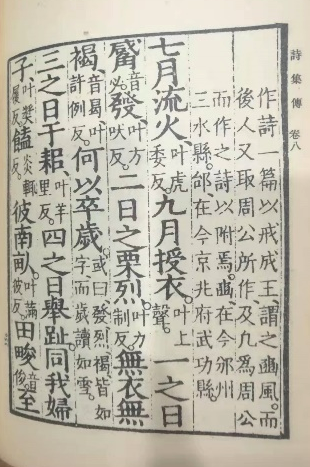 詩集傳 卷八
作詩一篇以戒成王。謂之豳風。而
後人又取周公所作。及凡為周公
而作之詩以附焉。豳、在今邠州
三水縣。邰、在今京兆府武功縣。
七月流火、叶虎委反。九月授衣。叶上聲。一之日
觱音必。發、叶方吠反。二日之栗烈。叶力制反。無衣無
褐、音曷、叶許例反。何以卒歲。或曰、發烈褐、皆如字、而歲讀如雪。
三之日于耜、叶羊里反。四之日舉趾。同我婦
子、叶獎履反。饁炎輒反。彼南畝。叶滿彼反。田畯音俊。至